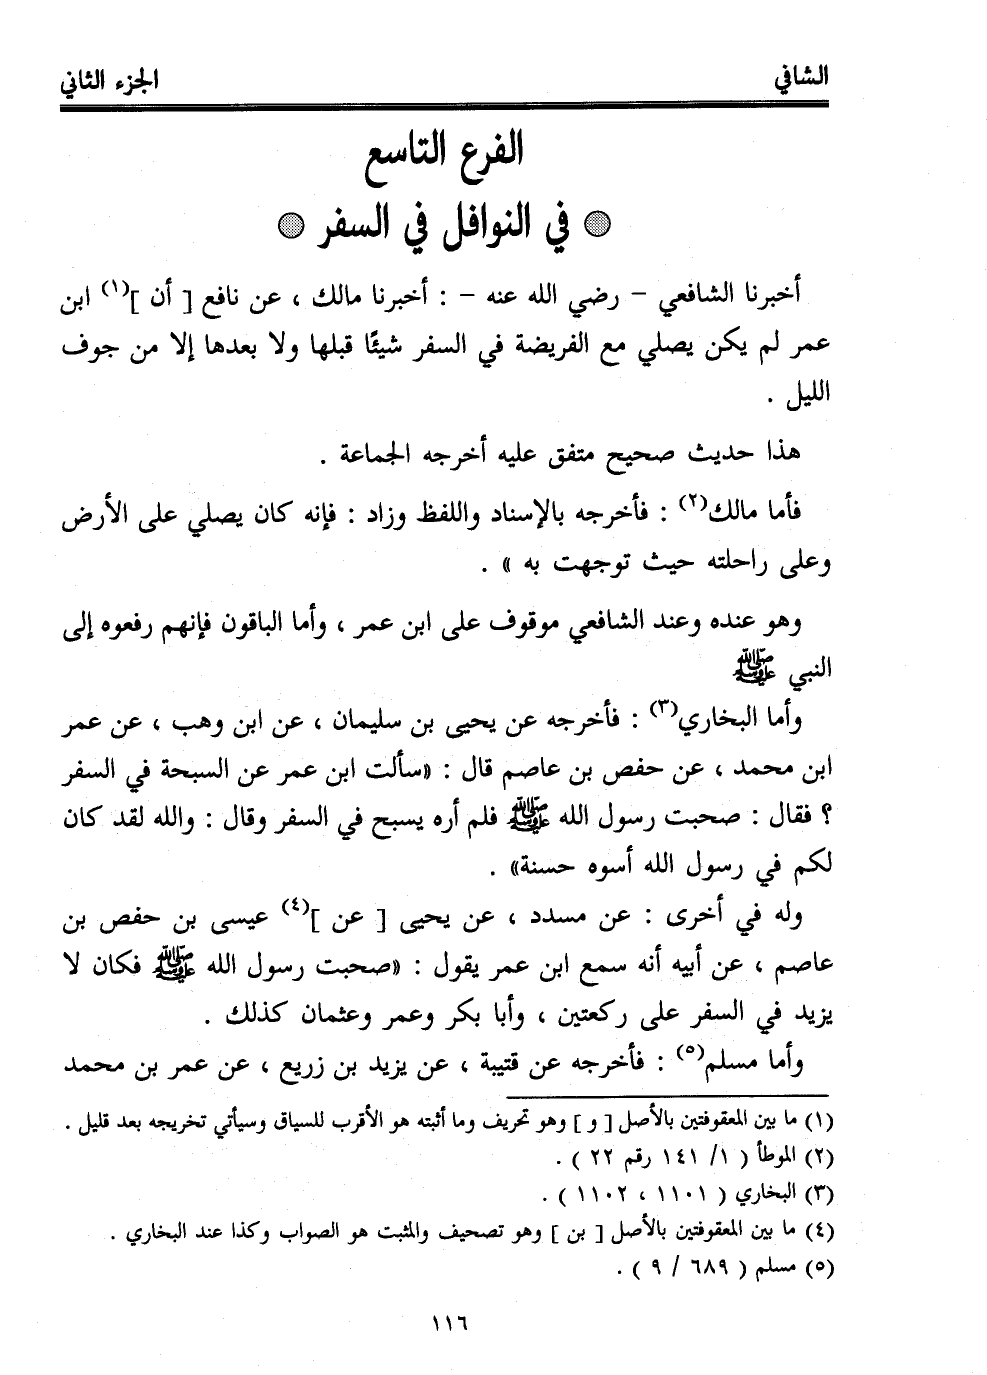 الشافي الجزء الثاني
الفرع التاسع
في النوافل في السفر
أخبرنا الشافعي - رضي الله عنه - : أخبرنا مالك ، عن نافع [ أن ](١) ابن
عمر لم يكن يصلي مع الفريضة في السفر شيئًا قبلها ولا بعدها إلا من جوف
الليل .
هذا حديث صحيح متفق عليه أخرجه الجماعة .
فأما مالك(٢) : فأخرجه بالإسناد واللفظ وزاد : فإنه كان يصلي على الأرض
وعلى راحلته حيث توجهت به » .
وهو عنده وعند الشافعي موقوف على ابن عمر ، وأما الباقون فإنهم رفعوه إلى
النبي ﷺ
وأما البخاري(٣) : فأخرجه عن يحيى بن سليمان ، عن ابن وهب ، عن عمر
ابن محمد ، عن حفص بن عاصم قال : «سألت ابن عمر عن السبحة في السفر
؟ فقال : صحبت رسول الله ﷺ فلم أره يسبح في السفر وقال : والله لقد كان
لكم في رسول الله أسوه حسنة» .
وله في أخرى : عن مسدد ، عن يحيى [ عن ](٤) عيسى بن حفص بن
عاصم ، عن أبيه أنه سمع ابن عمر يقول : «صحبت رسول الله ﷺ فكان لا
يزيد في السفر على ركعتين ، وأبا بكر وعمر وعثمان كذلك .
وأما مسلم(٥) : فأخرجه عن قتيبة ، عن يزيد بن زريع ، عن عمر بن محمد
(١) ما بين المعقوفتين بالأصل [ و ] وهو تحريف وما أثبته هو الأقرب للسياق وسيأتي تخريجه بعد قليل .
(٢) الموطأ ( ١/ ١٤١ رقم ٢٢ ) .
(٣) البخاري ( ١١٠١ ، ١١٠٢ ) .
(٤) ما بين المعقوفتين بالأصل [ بن ] وهو تصحيف والمثبت هو الصواب وكذا عند البخاري .
(٥) مسلم ( ٦٨٩ / ٩ ) .
١١٦